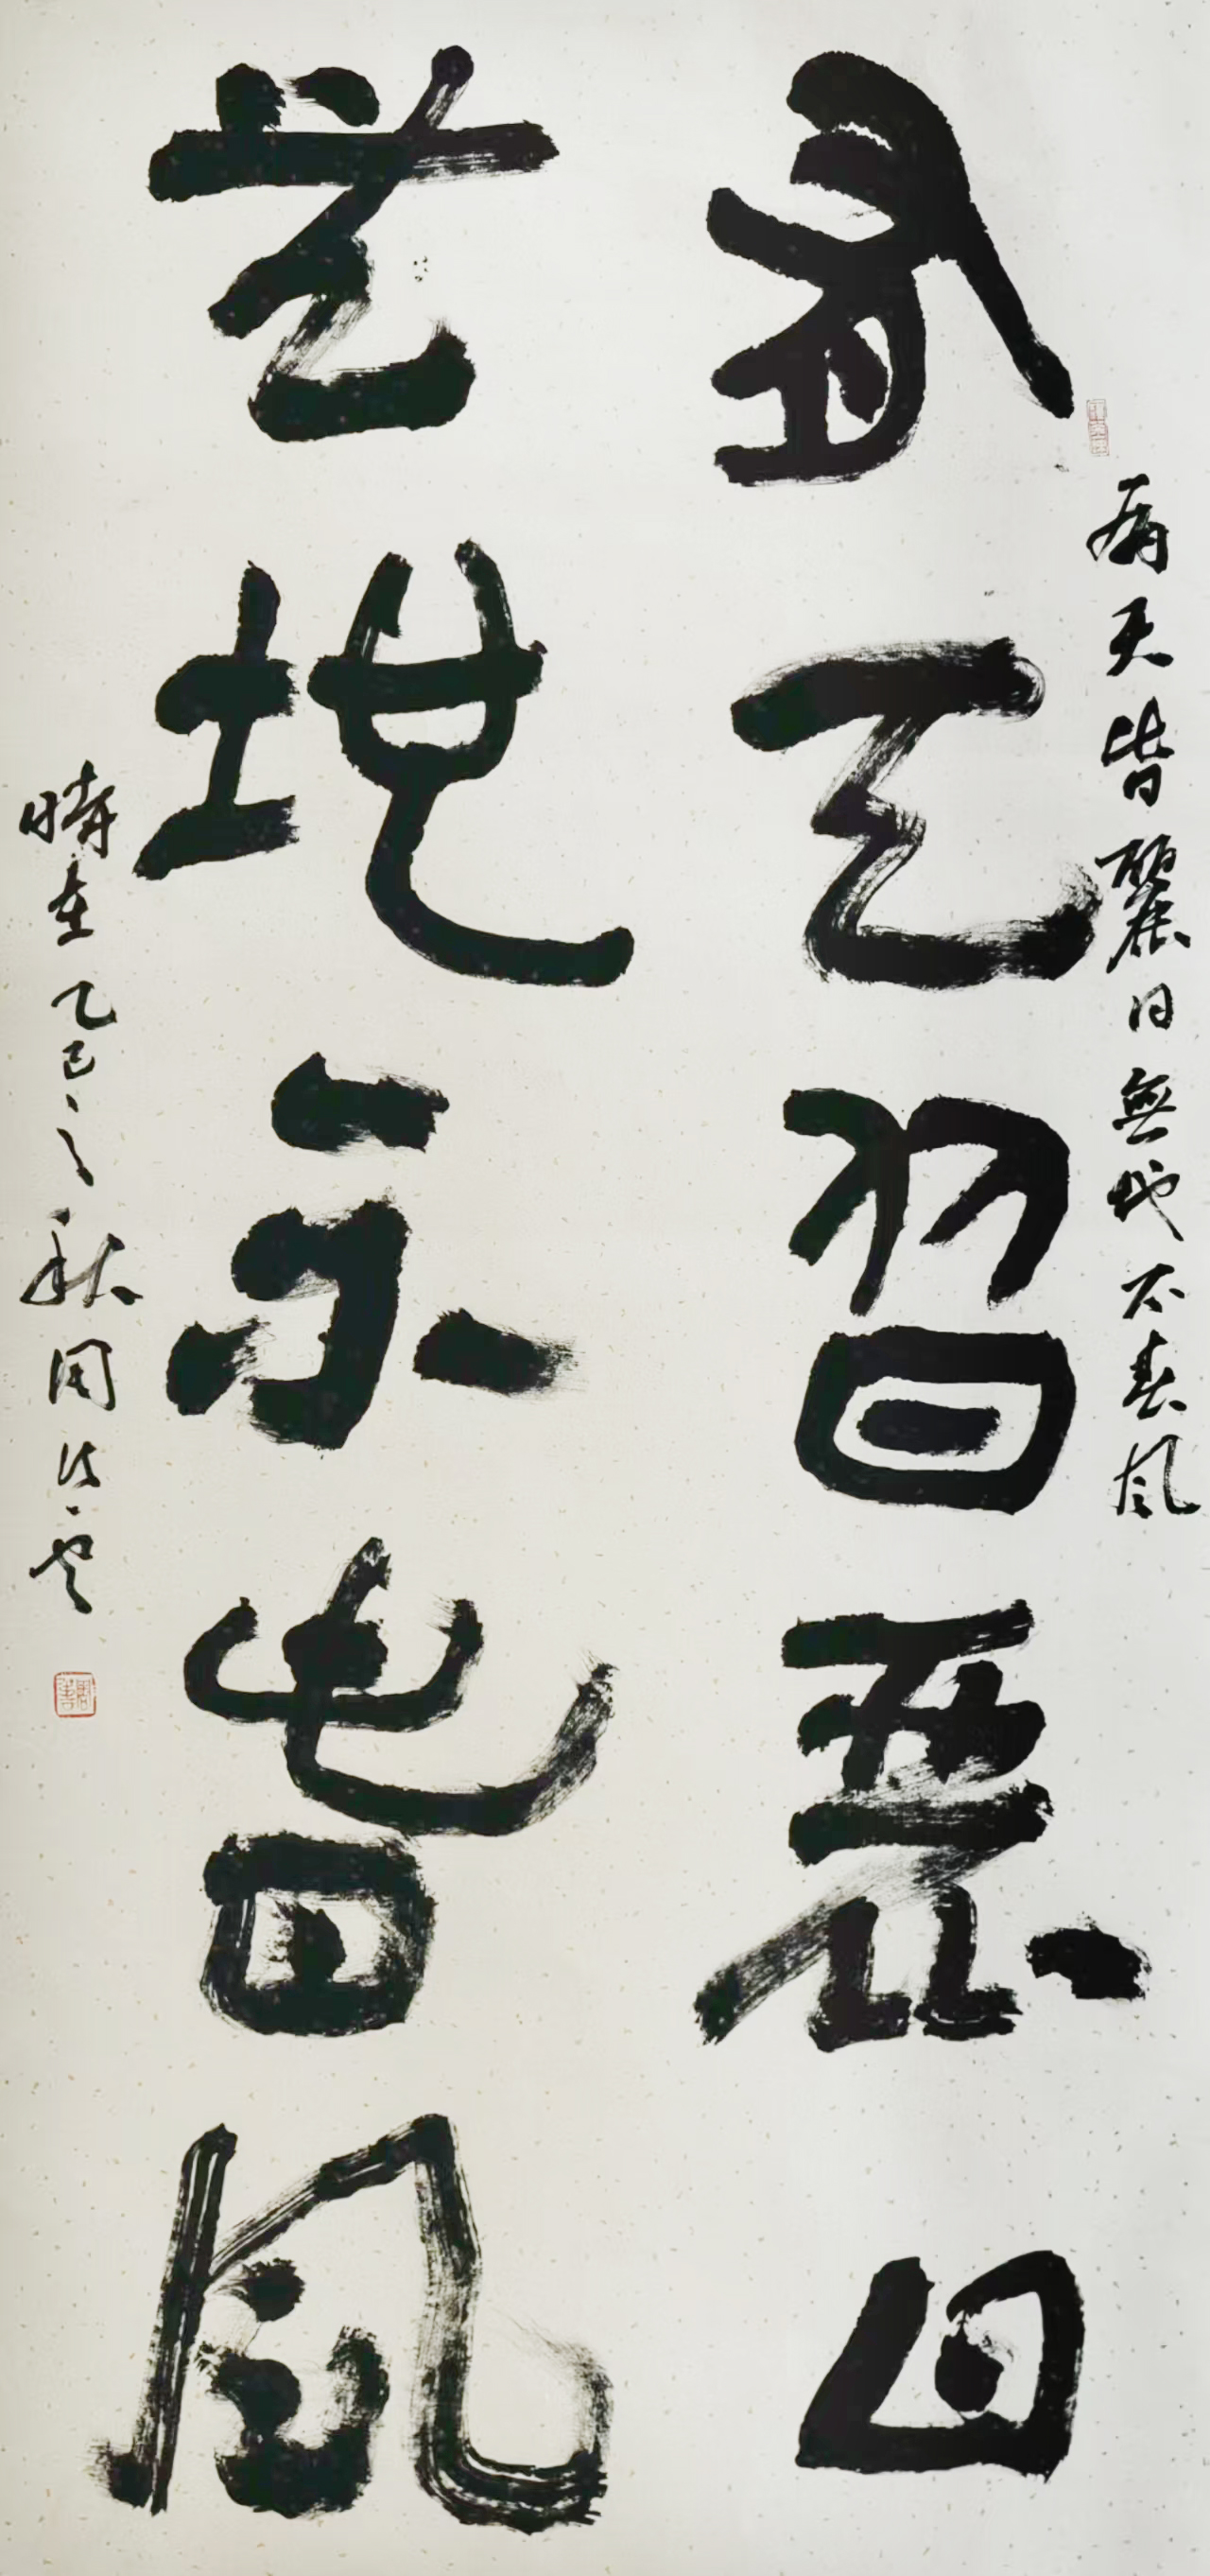 有天皆麗日無地不春風
有天皆麗日
無地不春風
時在乙巳之秋周